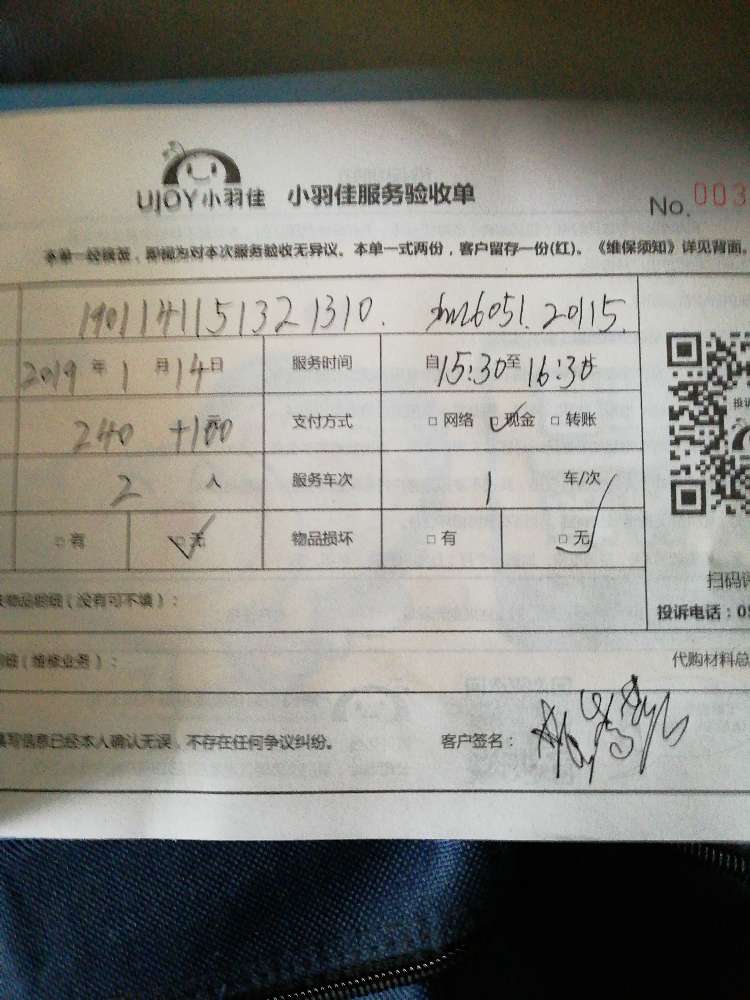 UJOY小羽佳 小羽佳服务验收单
No. 003
本单一经核签，即视为对本次服务验收无异议。本单一式两份，客户留存一份(红)。《维保须知》详见背面。
1901141151321310. 6051. 20115.
2019年1月14日 服务时间 自15:30至16:30
240元+100 支付方式 □ 网络 □ 现金 □ 转账
2人 服务车次 1 车/次
□ 有 □ 无 物品损坏 □ 有 □ 无
扫码评
物品明细（没有可不填）：
投诉电话：05
细（维修业务）： 代购材料总
填写信息已经本人确认无误，不存在任何争议纠纷。 客户签名：